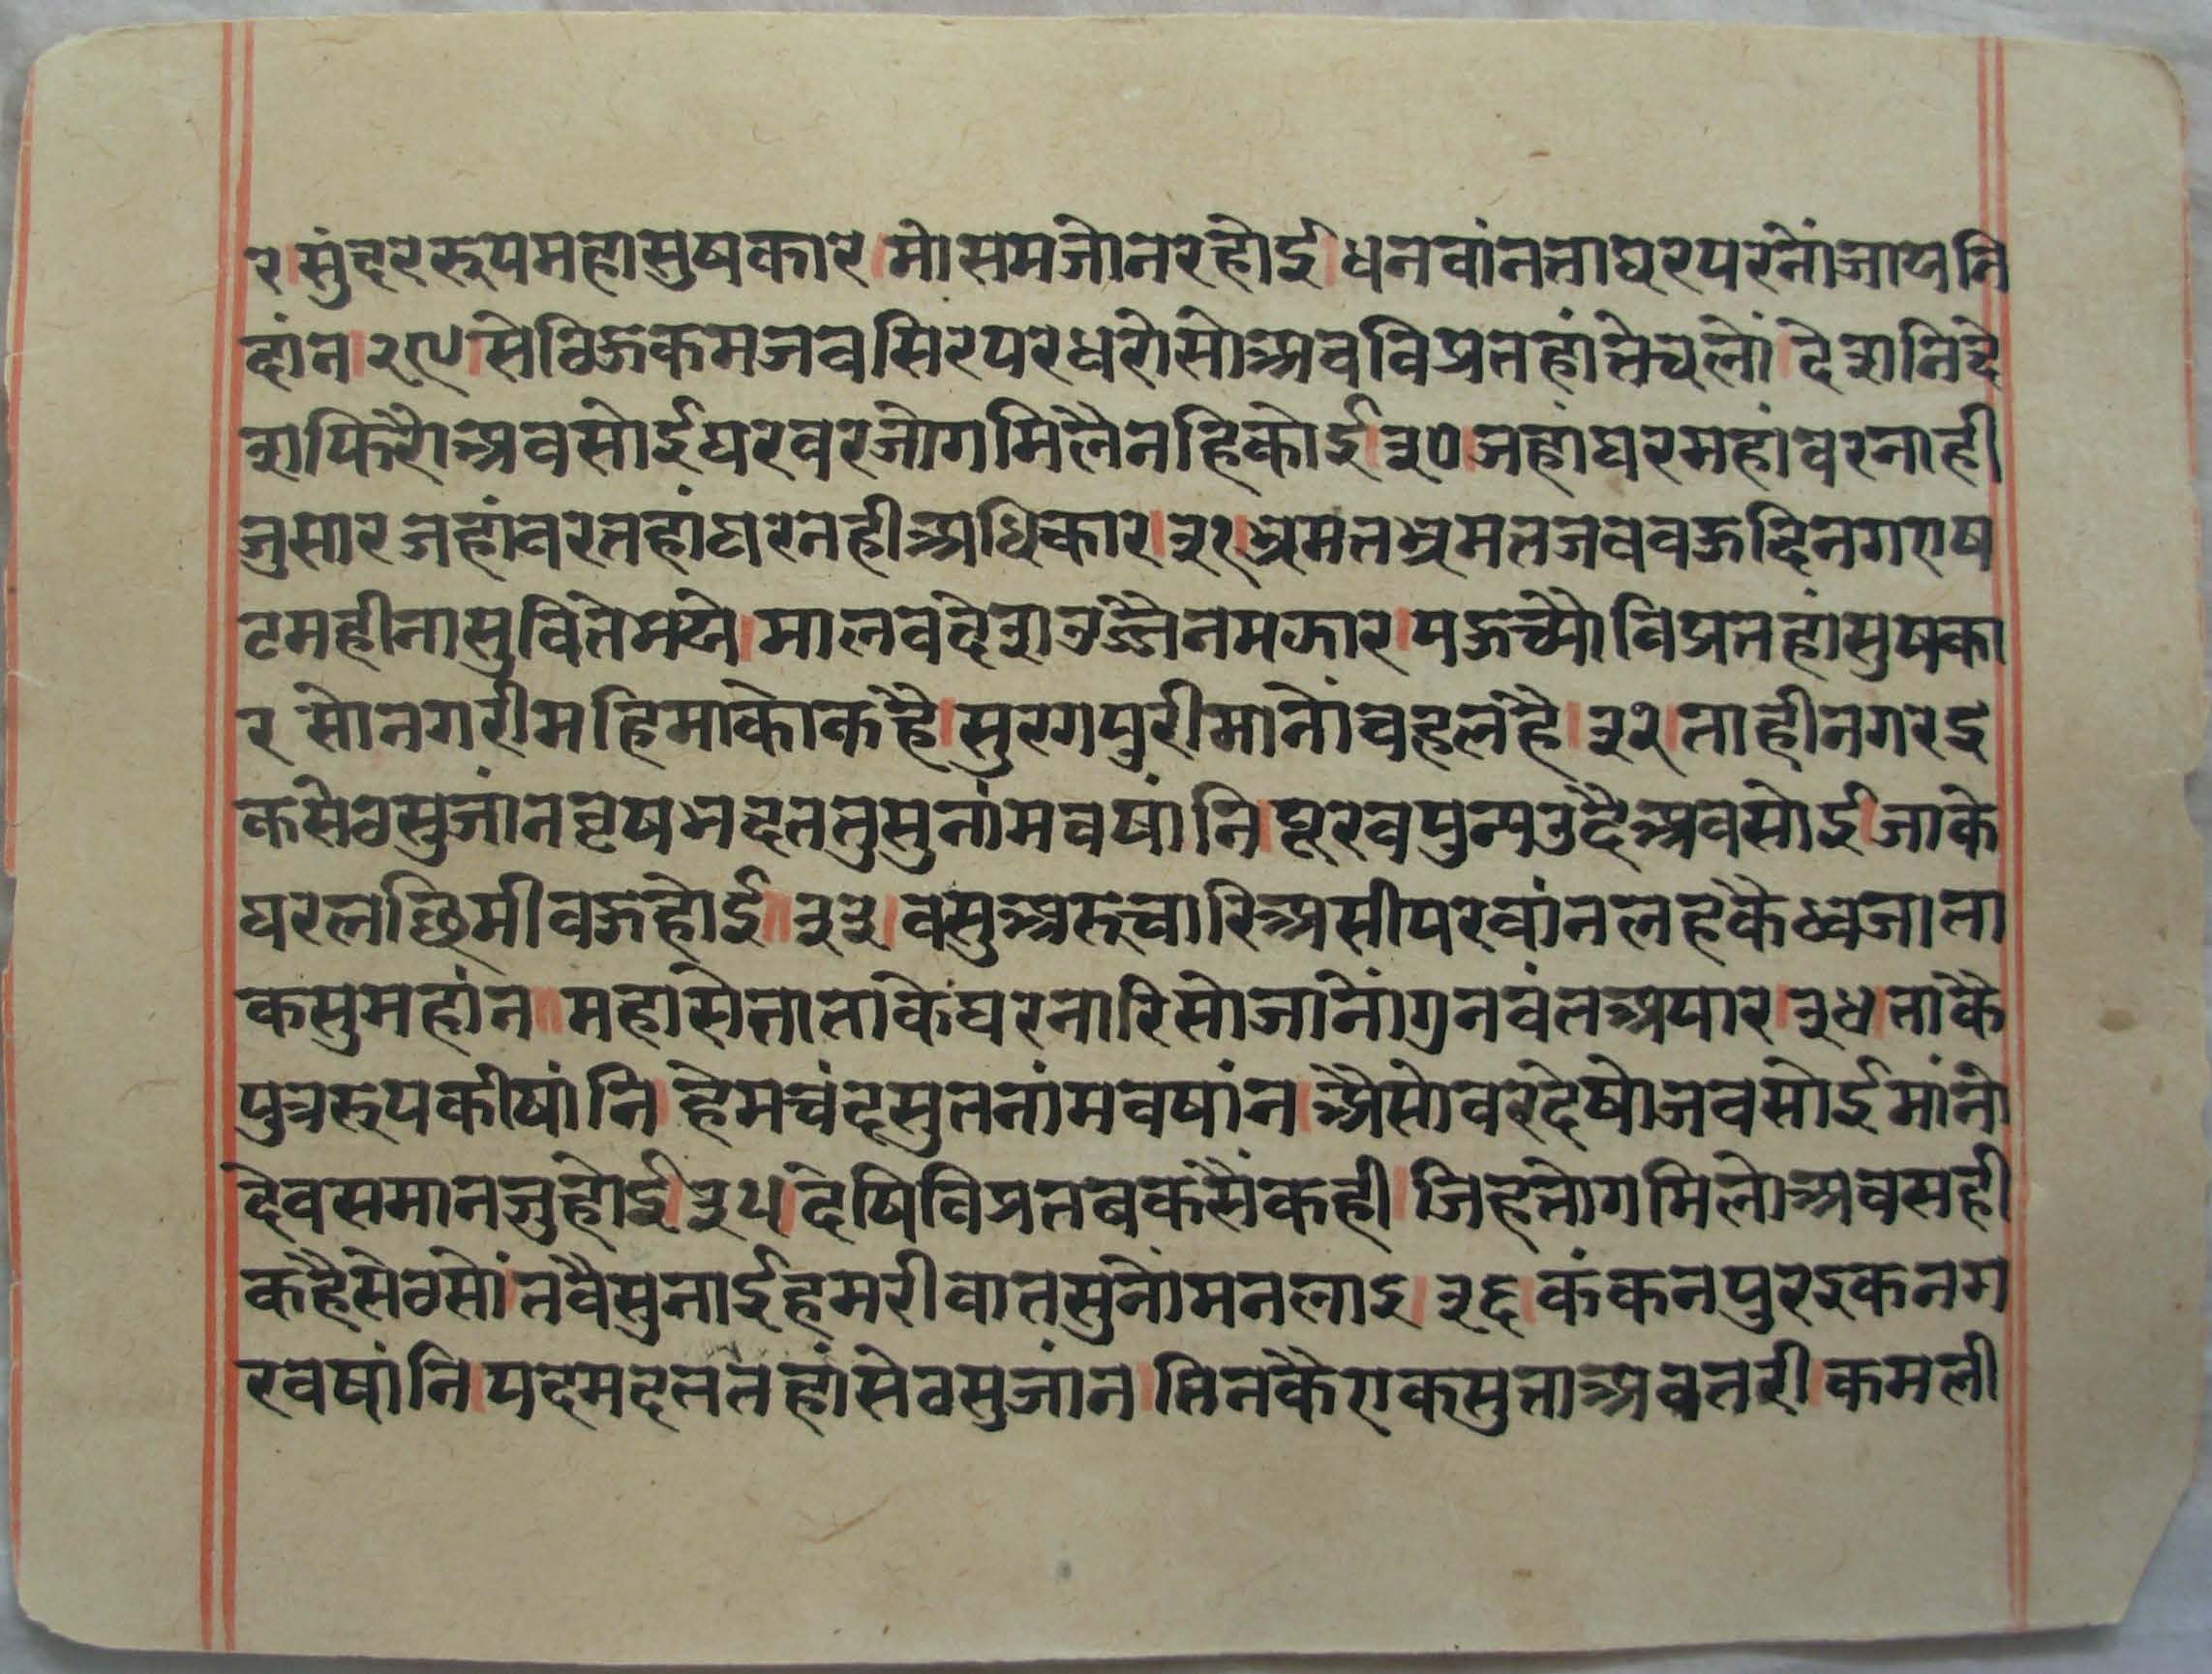 र।सुंदररूपमहासुषकार।मोसमजोनरहोई।धनवांनताघरपरनौंजायनि
दांन।२९।सेठिऊकमजवसिरपरधरोसोअवविप्रतहांतेचलों।देशनिदे
शफिरौअवसोईघरवरजोगमिलैनहिकोई।३०।जहांघरमहांवरनाही
जुसारजहांवरतहांघरनहीअधिकार।३१।भ्रमतभ्रमतजववऊदिनगएष
टमहीनासुवितेभये।मालवदेशउज्जैनमझार।पऊच्यौविप्रतहांसुषका
र सोनगरीमहिमाकोकहै।सुरगपुरीमानोंचहलहै।३२।ताहीनगरइ
कसेठसुजांनवृषभदततुसुनांमवषांनि।पूरवपुन्यउदैअवसोई।जाके
घरलछिमीवऊहोई॥३३।वसुअरूचारिअसीपरवांनलहकैध्वजाता
कसुमहांन॥महासेनाताकेंघरनारिसोजांनौंगुनवंतअपार।३४।ताकै
पुत्ररूपकीषांनि।हेमचंदसुतनांमवषांन।अैसोवरदेषोजवसोईमांनो
देवसमानजुहोई।३५।देषिविप्रतबकंसैंकही।जिहजोगमिलोअवसही
कहैसेठसों।तवैसुनाईहमरीवातसुनोंमनलाइ।३६।कंकनपुरइकनग
रवषांनि।पदमदततहांसेठसुजांन।तिनकैएकसुताअवतरी।कमली